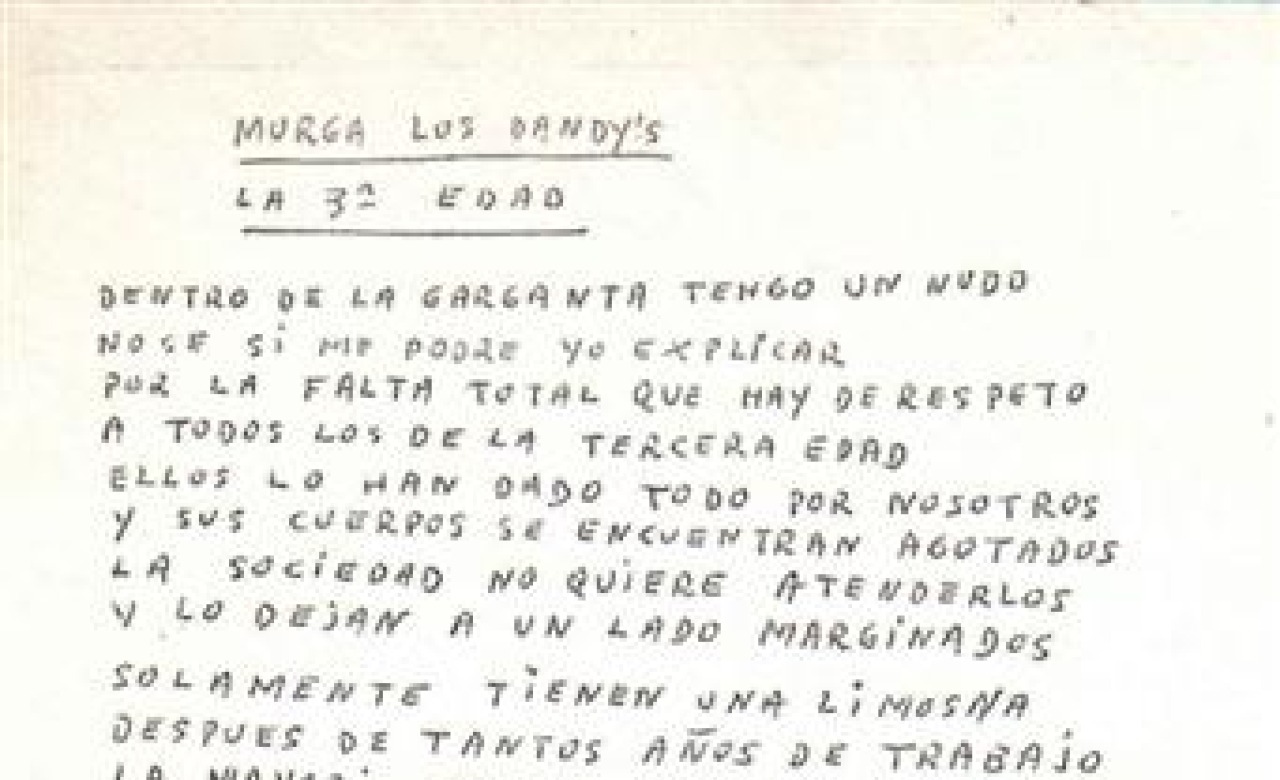 MURGA LOS DANDY'S
LA 3ª EDAD
DENTRO DE LA GARGANTA TENGO UN NUDO
NOSE Si ME PODRE YO EXPLiCAR
POR LA FALTA TOTAL QUE HAY DE RESPETO
A TODOS LOS DE LA TERCERA EDAD
ELLOS LO HAN DADO TODO POR NOSOTROS
Y SUS CUERPOS SE ENCUENTRAN AGOTADOS
LA SOCiEDAD NO QUiERE ATENDERLOS
Y LO DEJAN A UN LADO MARGiNADOS
SOLAMENTE TiENEN UNA LiMOSNA
DESPUES DE TANTOS AÑOS DE TRABAJO
LA